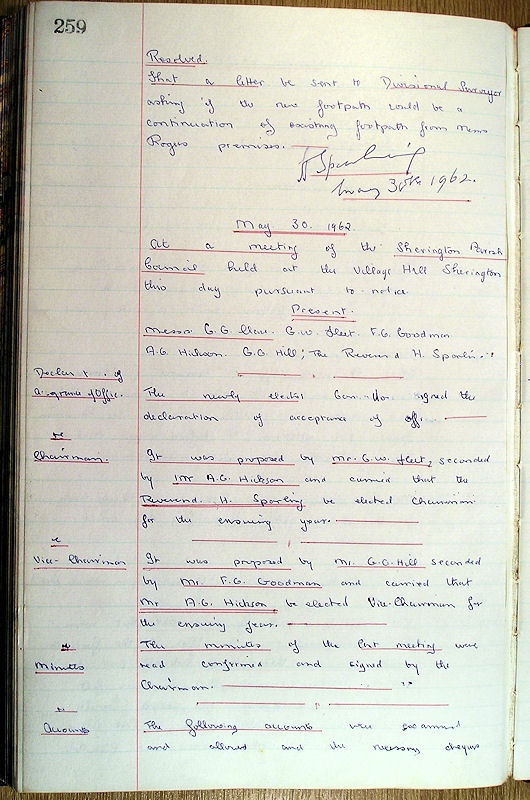 259
Resolved.
That a letter be sent to Divisional Surveyor
asking if the new footpath could be a
continuation of existing footpath from Messrs
Rogers premises.
H Sparling
May 30th 1962.
May 30. 1962.
At a meeting of the Sherington Parish
Council held at the Village Hall Sherington
this day pursuant to notice
Present.
Messrs G.G. G.W. Fleet. F.G. Goodman
A.G. Hickson. G.G. Hill; The Reverend H. Sparling
Declar t. of
a. g. rance of Office.
The newly elected signed the
declaration of acceptance of office.
re
Chairman.
It was proposed by Mr. G.W. Fleet, seconded
by Mr A.G. Hickson and carried that the
Reverend H. Sparling be elected Chairman
for the ensuing year.
re
Vice-Chairman
It was proposed by Mr. G.G. Hill seconded
by Mr. F.G. Goodman and carried that
Mr A.G. Hickson, be elected Vice-Chairman for
the ensuing year.
re
Minutes
The minutes of the last meeting were
read confirmed and signed by the
Chairman.
re
Accounts
The following accounts were examined
and allowed and the necessary cheques